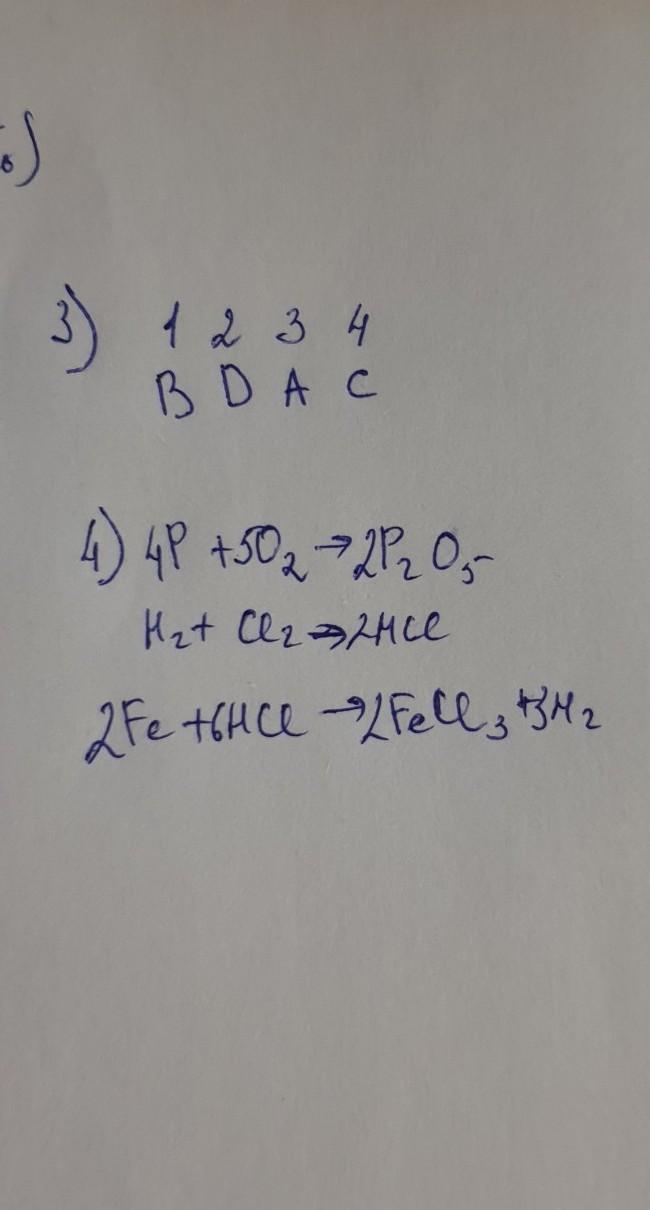 б)
3) 1 2 3 4
B D A C
4) 4P + 5O2 → 2P2O5
H2 + Cl2 → 2HCl
2Fe + 6HCl → 2FeCl3 + 3H2